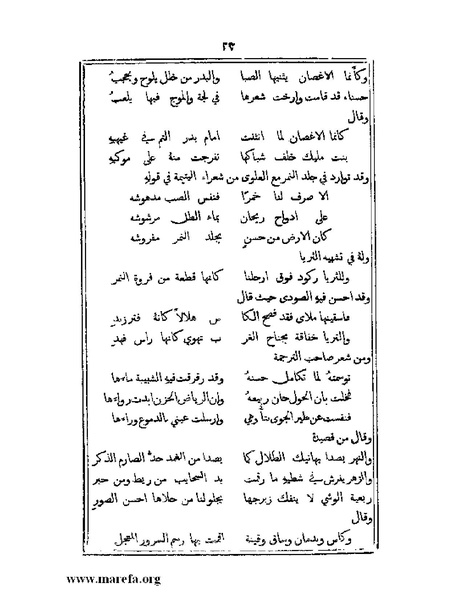 ٢٣
وكأنما الاغصان يثنيها الصبا والبدر من خلل يلوح ويحجبُ
حسناء قد قامت وارخت شعرها في لجة والموج فيها يلعبُ
وقال
كانما الاغصان لما انثنت امام بدر التم في غيهبه
بنت مليك خلف شباكها تفرجت منهُ على موكبه
وقد توارد في جلد النمر مع العلوي من شعراء اليتيمة في قولهِ
الا صرف لنا خمرًا فنفس الصب مدهوشه
على ادواح ريحان بماء الطل مرشوشه
كان الارض من حسنٍ بجلد النمر مفروشه
ولهُ في تشبيه الثريا
وللثريا ركود فوق ارحلنا كانها قطعة من فروة النمر
وقد احسن فيهِ الصودي حيث قال
فاسقينها ملاى فقد فضح الكا س هلالاً كانهُ فتر زند
والثريا خفاقة بجناح الغر ب تهوي كانها راس فهد
ومن شعر صاحب الترجمة
توسمتهُ لما تكامل حسنهُ وقد رقرقت فيهِ الشبيبة ماءها
فخلت بان الحول حان ربيعهُ وان الرياض الحزن ابدت رواءها
فنفست عن طير الجوى وارسلت عيني بالدموع وراءها
وقال من قصيدة
والنهر يصدا بهاتيك الظلال كما يصدا من الغمد حدُّ الصارم الذكر
والزهر يفرش في شطيهِ ما رقمت يد السحايب من ريط ومن حبر
ربعية الوشي لا ينفك زبرجها يجلو لنا من حلاها احسن الصور
وقال
وكاس وندمان وساقٍ وقينة اقمت بها رسم السرور المعجل
www.marefa.org